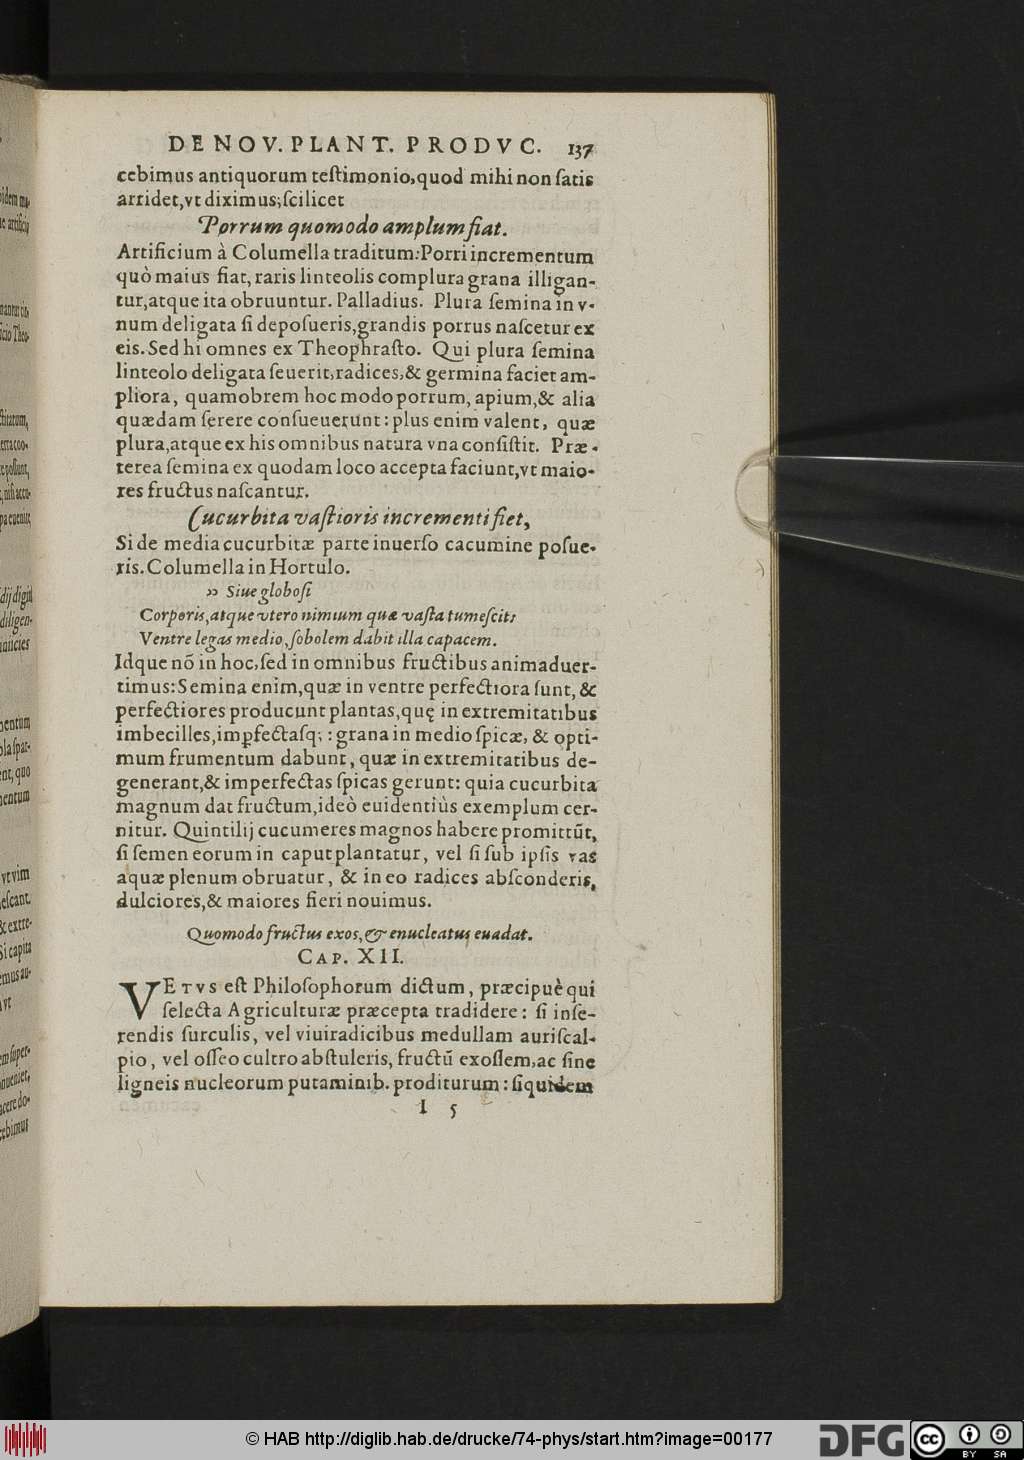 DE NOV. PLANT. PRODVC. 137
cebimus antiquorum teſtimonio, quod mihi non ſatis
arridet, vt diximus; ſcilicet
Porrum quomodo amplum fiat.
Artificium à Columella traditum: Porri incrementum
quò maius fiat, raris linteolis complura grana illigan-
tur, atque ita obruuntur. Palladius. Plura ſemina in v-
num deligata ſi depoſueris, grandis porrus naſcetur ex
eis. Sed hi omnes ex Theophraſto. Qui plura ſemina
linteolo deligata ſeuerit, radices, & germina faciet am-
pliora, quamobrem hoc modo porrum, apium, & alia
quædam ſerere conſueuerunt: plus enim valent, quæ
plura, atque ex his omnibus natura vna conſiſtit. Præ-
terea ſemina ex quodam loco accepta faciunt, vt maio-
res fructus naſcantur.
Cucurbita vaſtioris incrementi fiet,
Si de media cucurbitæ parte inuerſo cacumine poſue-
ris. Columella in Hortulo.
» Siue globoſi
Corporis, atque vtero nimium quæ vaſta tumeſcit:
Ventre legas medio, ſobolem dabit illa capacem.
Idque nõ in hoc, ſed in omnibus fructibus animaduer-
timus: Semina enim, quæ in ventre perfectiora ſunt, &
perfectiores producunt plantas, quę in extremitatibus
imbecilles, imꝑfectaſq;: grana in medio ſpicæ, & opti-
mum frumentum dabunt, quæ in extremitatibus de-
generant, & imperfectas ſpicas gerunt: quia cucurbita
magnum dat fructum, ideò euidentiùs exemplum cer-
nitur. Quintilij cucumeres magnos habere promittũt,
ſi ſemen eorum in caput plantatur, vel ſi ſub ipſis vas
aquæ plenum obruatur, & in eo radices abſconderis,
dulciores, & maiores fieri nouimus.
Quomodo fructus exos, & enucleatus euadat.
CAP. XII.
VETVS eſt Philoſophorum dictum, præcipuè qui
ſelecta Agriculturæ præcepta tradidere: ſi inſe-
rendis ſurculis, vel viuiradicibus medullam auriſcal-
pio, vel oſſeo cultro abſtuleris, fructũ exoſſem, ac ſine
ligneis nucleorum putaminib. proditurum: ſiquidem
I 5
© HAB http://diglib.hab.de/drucke/74-phys/start.htm?image=00177
DFG
cc BY SA